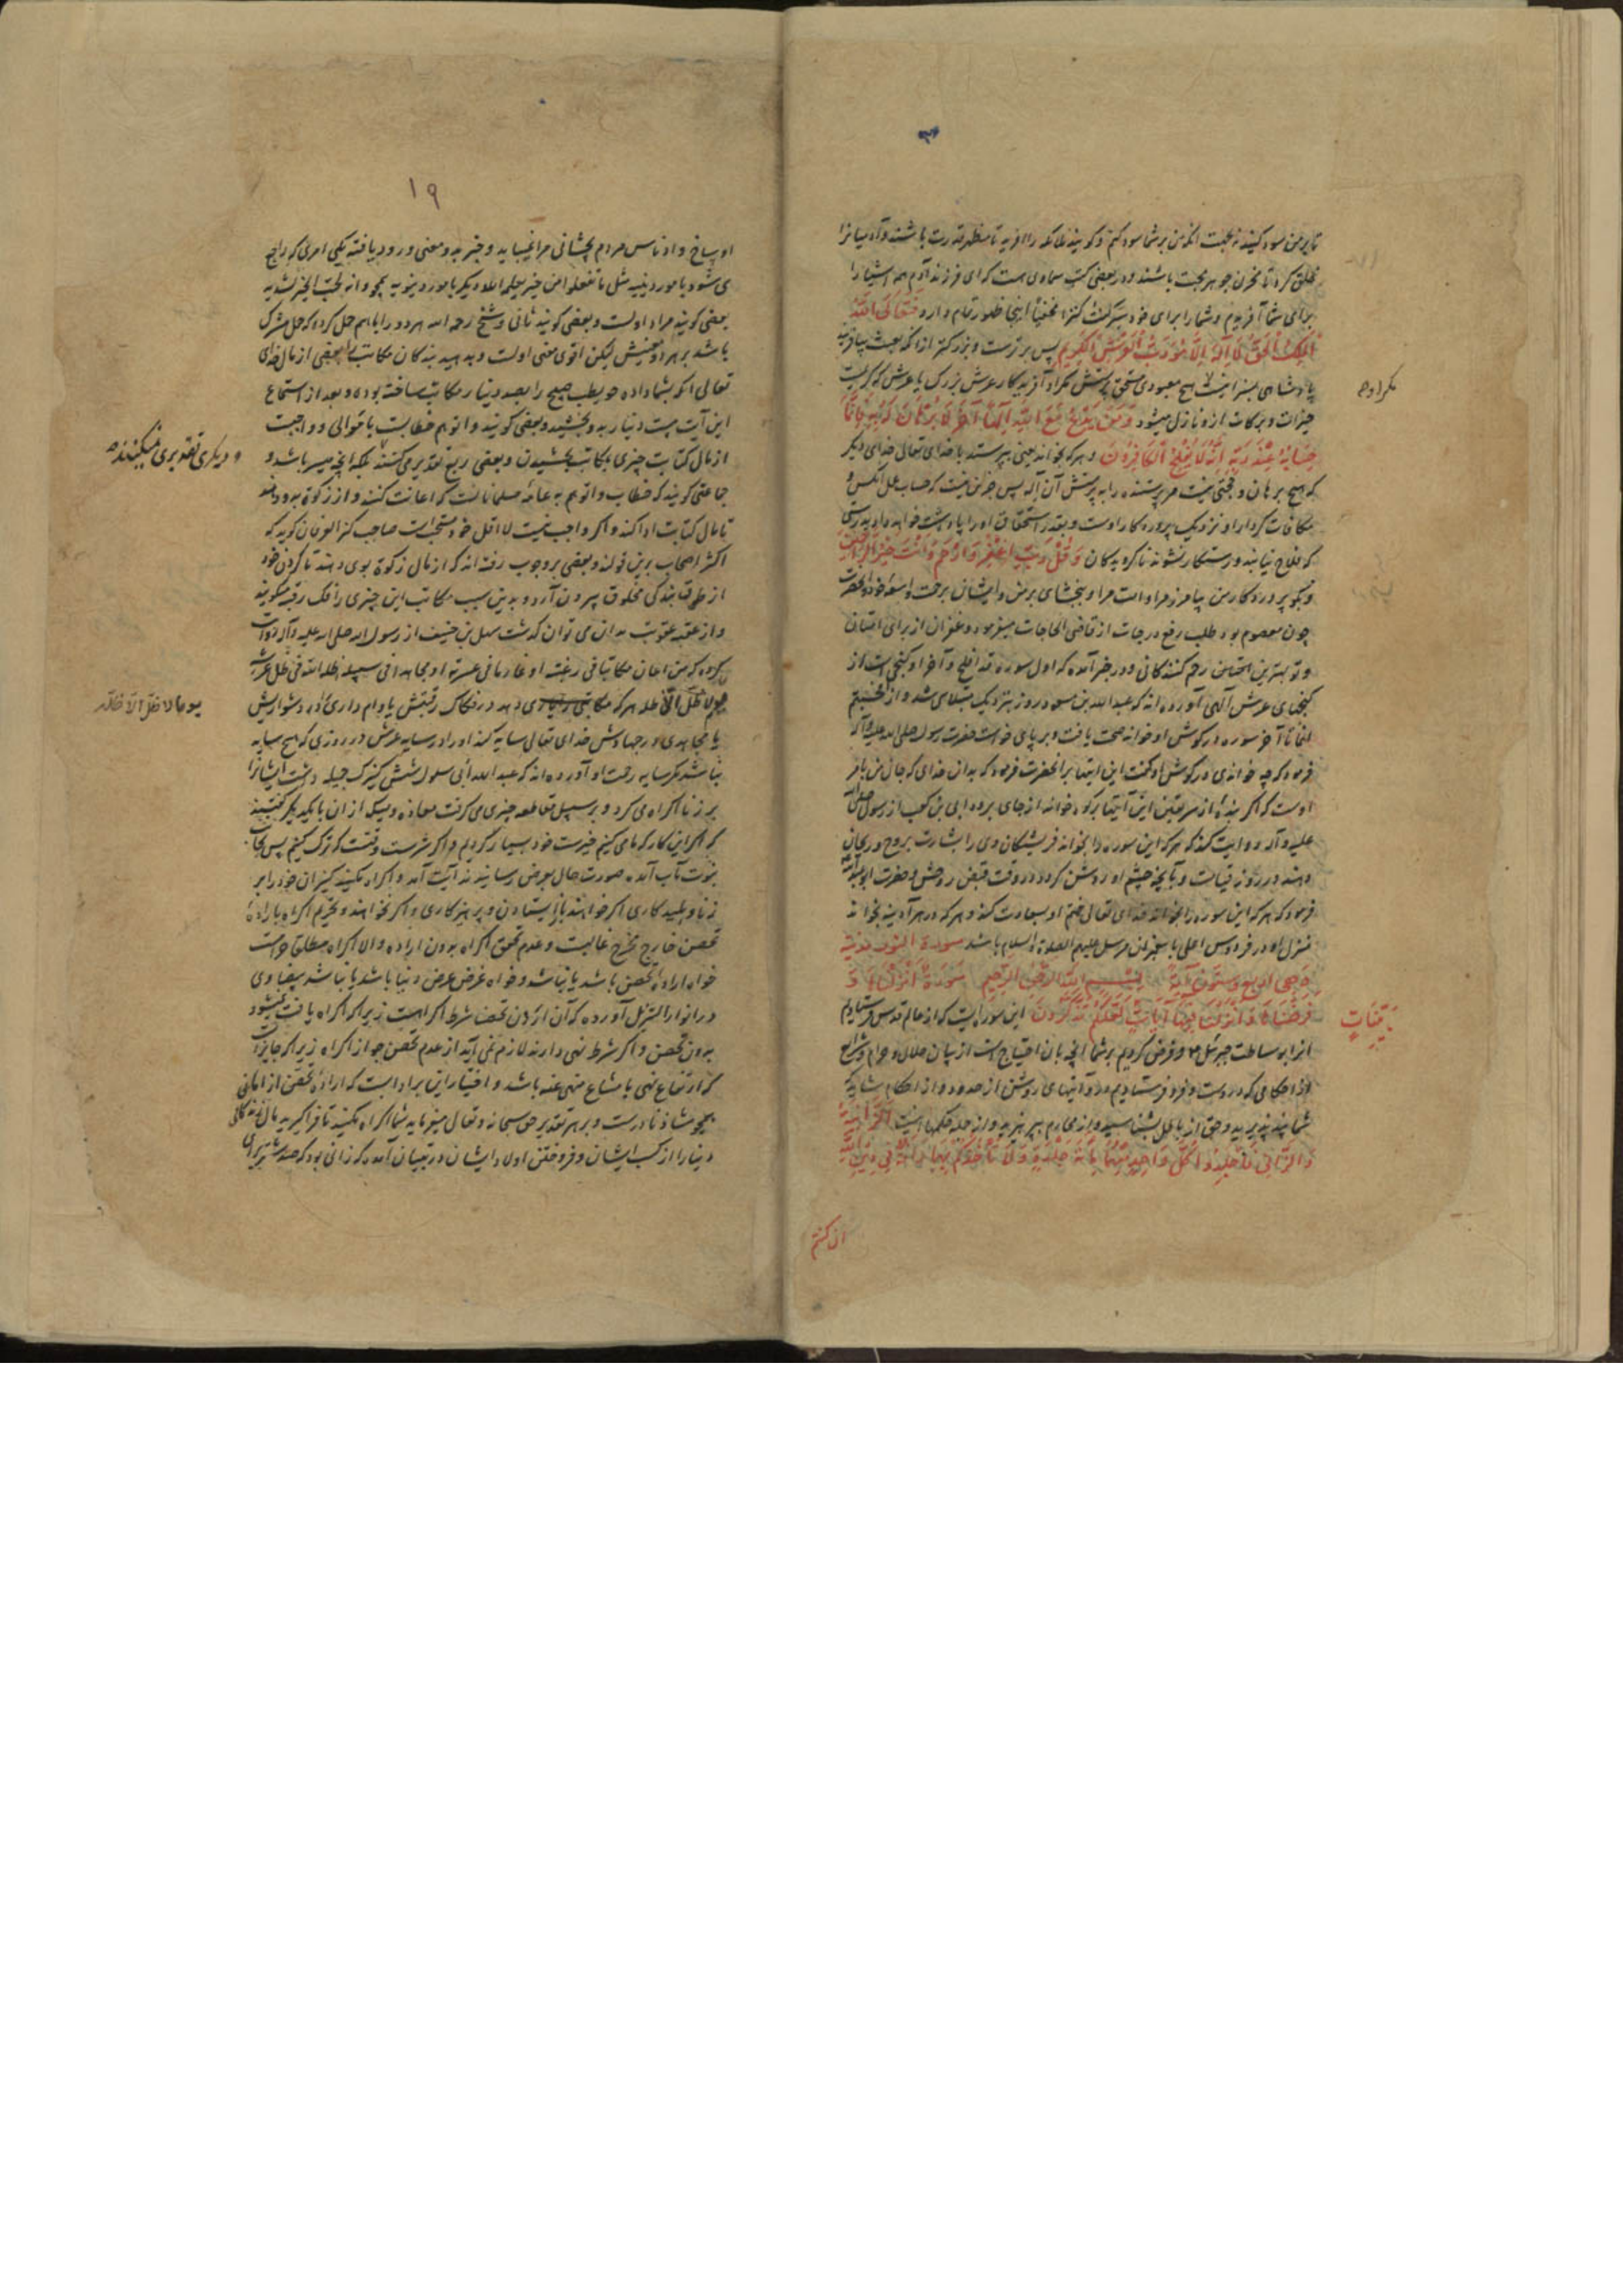 تا بر من سود کنید نه بجهت انکه من بر شما سود کنم و کویند ملائکه را افرید تا مظهر قدرت باشند و آدمیانرا
خلق کرد تا مخزن جوهر محبت باشند و در بعضی کتب سماوی هست که ای فرزند آدم همه اشیا را
برای شما آفریدم و شما را برای خود سر کنت کنزا مخفیا اینجا ظهور تمام دارد فَتَعَالَی اللّهُ
الْمَلِکُ الْحَقُّ لَا اِلَهَ اِلَّا هُوَ رَبُّ الْعَرْشِ الْکَرِیمِ پس برترست و بزرکتر از انکه بعبث بیافریند
پادشاهی بسزا نیست هیچ معبودی مستحق پرستش مکر او آفریدکار عرش بزرک یا عرش که کریمست
خیرات و برکات ازو نازل میشود وَمَنْ یَدْعُ مَعَ اللّهِ اِلَهًا آخَرَ لَا بُرْهَانَ لَهُ بِهِ فَاِنَّمَا
حِسَابُهُ عِنْدَ رَبِّهِ اِنَّهُ لَا یُفْلِحُ الْکَافِرُونَ و هر که بخواند یعنی بپرستد با خدای تعالی خدای دیکر
که هیچ برهان و حجتی نیست مر پرستنده را به پرستش آن آله پس جز این نیست که حساب عمل انکس و
مکافات کردار او نزدیک پروردکار اوست و بقدر استحقاق او را پاداشت خواهد داد بدرستی
که فلاح نیابند و رستکار نشوند ناکرویدکان وَقُلْ رَبِّ اغْفِرْ وَارْحَمْ وَاَنْتَ خَیْرُ الرَّاحِمِینَ
و بکو پروردکار من بیامرز مرا و امت مرا و ببخشای بر من و ایشان برحمت واسعه خود و انحضرت
چون معصوم بود طلب رفع درجات از قاضی الحاجات مینمود و غفران از برای امتیان
و تو بهترین رحم کنندکانی و در خبر آمده که اول سوره قد افلح و آخر او کنجی است از
کنجهای عرش آلهی آورده اند که عبد الله بن مسعود روزی بنزدیک مبتلای شد و از افحسبتم
انما تا آخر سوره در کوش او خواند صحت یافت و بر پای خواست حضرت رسول صلی الله علیه و آله
فرمود که چه خواندی در کوش او کفت این ایتها بر انحضرت فرمود که بدان خدای که جان من بامر
اوست که اکر بنده از سر یقین این آیتها بر کوه خواند از جای برود ابی بن کعب از رسول صلی الله
علیه و آله روایت کند که هر که این سوره را بخواند فریشتکان وی را بشارت بروح و ریحان
دهند در روز قیامت و بآنچه چشم او روشن کردد در وقت قبض روحش و حضرت ابو عبد الله
فرمود که هر که این سوره را بخواند خدای تعالی ختم او بسعادت کند و هر که در هر آدینه بخواند
منزل او در فردوس اعلی با پیغمبران مرسل علیهم الصلوة و السلام باشد سورة النور مدنیة
وهی اربع وستون آیة بِسْمِ اللّهِ الرَّحْمنِ الرَّحِیمِ سُورَةٌ اَنْزَلْنَاهَا وَ
فَرَضْنَاهَا وَاَنْزَلْنَا فِیهَا آیَاتٍ لَعَلَّکُمْ تَذَکَّرُونَ این سوره ایست که از عالم قدس فرستادیم
انرا بوساطت جبرئیل و فرض کردیم بر شما انچه بان احتیاج است از بیان حلال و حرام و شرایع
و احکامی که دروست و فرو فرستادیم درو آیتهای روشن از حدود و از احکام شاید که
شما پند پذیرید و حق از باطل بشناسید و از محارم بپرهیزید و از جمله حکمها اینست اَلزَّانِیَةُ
وَالزَّانِی فَاجْلِدُوا کُلَّ وَاحِدٍ مِنْهُمَا مِائَةَ جَلْدَةٍ وَلَا تَأْخُذْکُمْ بِهِمَا رَأْفَةٌ فِی دِینِ اللّهِ
ان کنتم
مکر او
بَیِّنَاتٍ
۱۹
ی شود یا مورد ینیه مثل ما تفعلوا من خیر یعلمه الله و دیکر یا مور دنیویه همچو وانه لحب الخیر لشدید
بعضی کویند مراد اولست و بعضی کویند ثانی و شیخ رحمه الله هر دو را باهم حمل کرده که حمل مشترک
باشد بر هر دو معنیش لیکن اقوی معنی اولست و بدهید بندکان مکاتب را بعضی از مال خدای
تعالی انکه بشما داده حویطب صبیح را بصد دینار مکاتب ساخته بود و بعد از استماع
این آیت بیست دینار بدو بخشید و بعضی کویند واتوهم خطابست با موالی و واجبست
از مال کتابت چیزی بمکاتب بخشیدن و بعضی ربع تقدیر می کنند بلکه انچه میسر باشد و
جماعتی کویند که خطاب واتوهم به عامه مسلمانانست که اعانت کنند و از زکوة بدو دهند
تا مال کتابت ادا کند و اکر واجب نیست لااقل خود مستحب است صاحب کنز العرفان کوید که
اکثر اصحاب برین قولند و بعضی بر وجوب رفته اند که از مال زکوة بوی دهند تا کردن خود
از طوق بندکی مخلوق بیرون آرد و بدین سبب مکاتب این چیزی را فک رقبه میکویند
و از عقبه عقوبت بدان می توان کذشت سهل بن حنیف از رسول الله صلی الله علیه و آله روایت
کرده که من اعان مکاتبا فی رقبته او غارما فی عسرته او مجاهدا فی سبیله اظله الله فی ظل عرشه
یوم لا ظل الا ظله هر که مکاتبی را یاری دهد در فکاک رقبتش یا وام داری را در دشوارایش
یا مجاهدی را در جهادش خدای تعالی سایه کند او را در سایه عرش در روزی که هیچ سایه
نباشد مکر سایه رحمت او آورده اند که عبد الله ابی سلول شش کنیزک جمیله داشت ایشانرا
بر زنا اکراه می کرد و بر سبیل مقاطعه چیزی می کرفت معاذه و مسیکه از ان با یکدیکر کفتند
که اکر این کار که ما می کنیم خیرست خود بسیار کردیم و اکر شرست وقتست که ترک کنیم پس بجناب
نبوت مآب آمده صورت حال بعرض رسانیدند آیت آمد و اکراه مکنید کنیزان خود را بر
زنا و پلید کاری اکر خواهند باز ایستادن و پرهیزکاری و اکر نخواهند و تحریم اکراه باراده
تحصن خارج مخرج غالبست و عدم تحقق اکراه بدون اراده و الا اکراه مطلقا حرامست
خواه اراده تحصن باشد یا نباشد و خواه غرض عرض دنیا باشد یا نباشد بیضاوی
در انوار التنزیل آورده که آن اردن تحصنا شرط اکراه است زیرا که اکراه یافت نمیشود
بدون تحصن و اکر شرط نهی دارند لازم نمی آید از عدم تحصن جواز اکراه زیرا که جایزست
که ارتفاع نهی بامتناع منهی عنه باشد و اختیار این براد است که اراده تحصن از امانی
همچو شاذ نادرست و بر هر تقدیر حق سبحانه و تعالی میفرماید شما اکراه مکنید تا فرا کیرید مال زندکانی
دنیا را از کسب ایشان و فروختن اولاد ایشان در تبیان آمده که زانی بود که صد شتر برای
و دیکری تقدیری نمیکنند
یوم لا ظل الا ظله